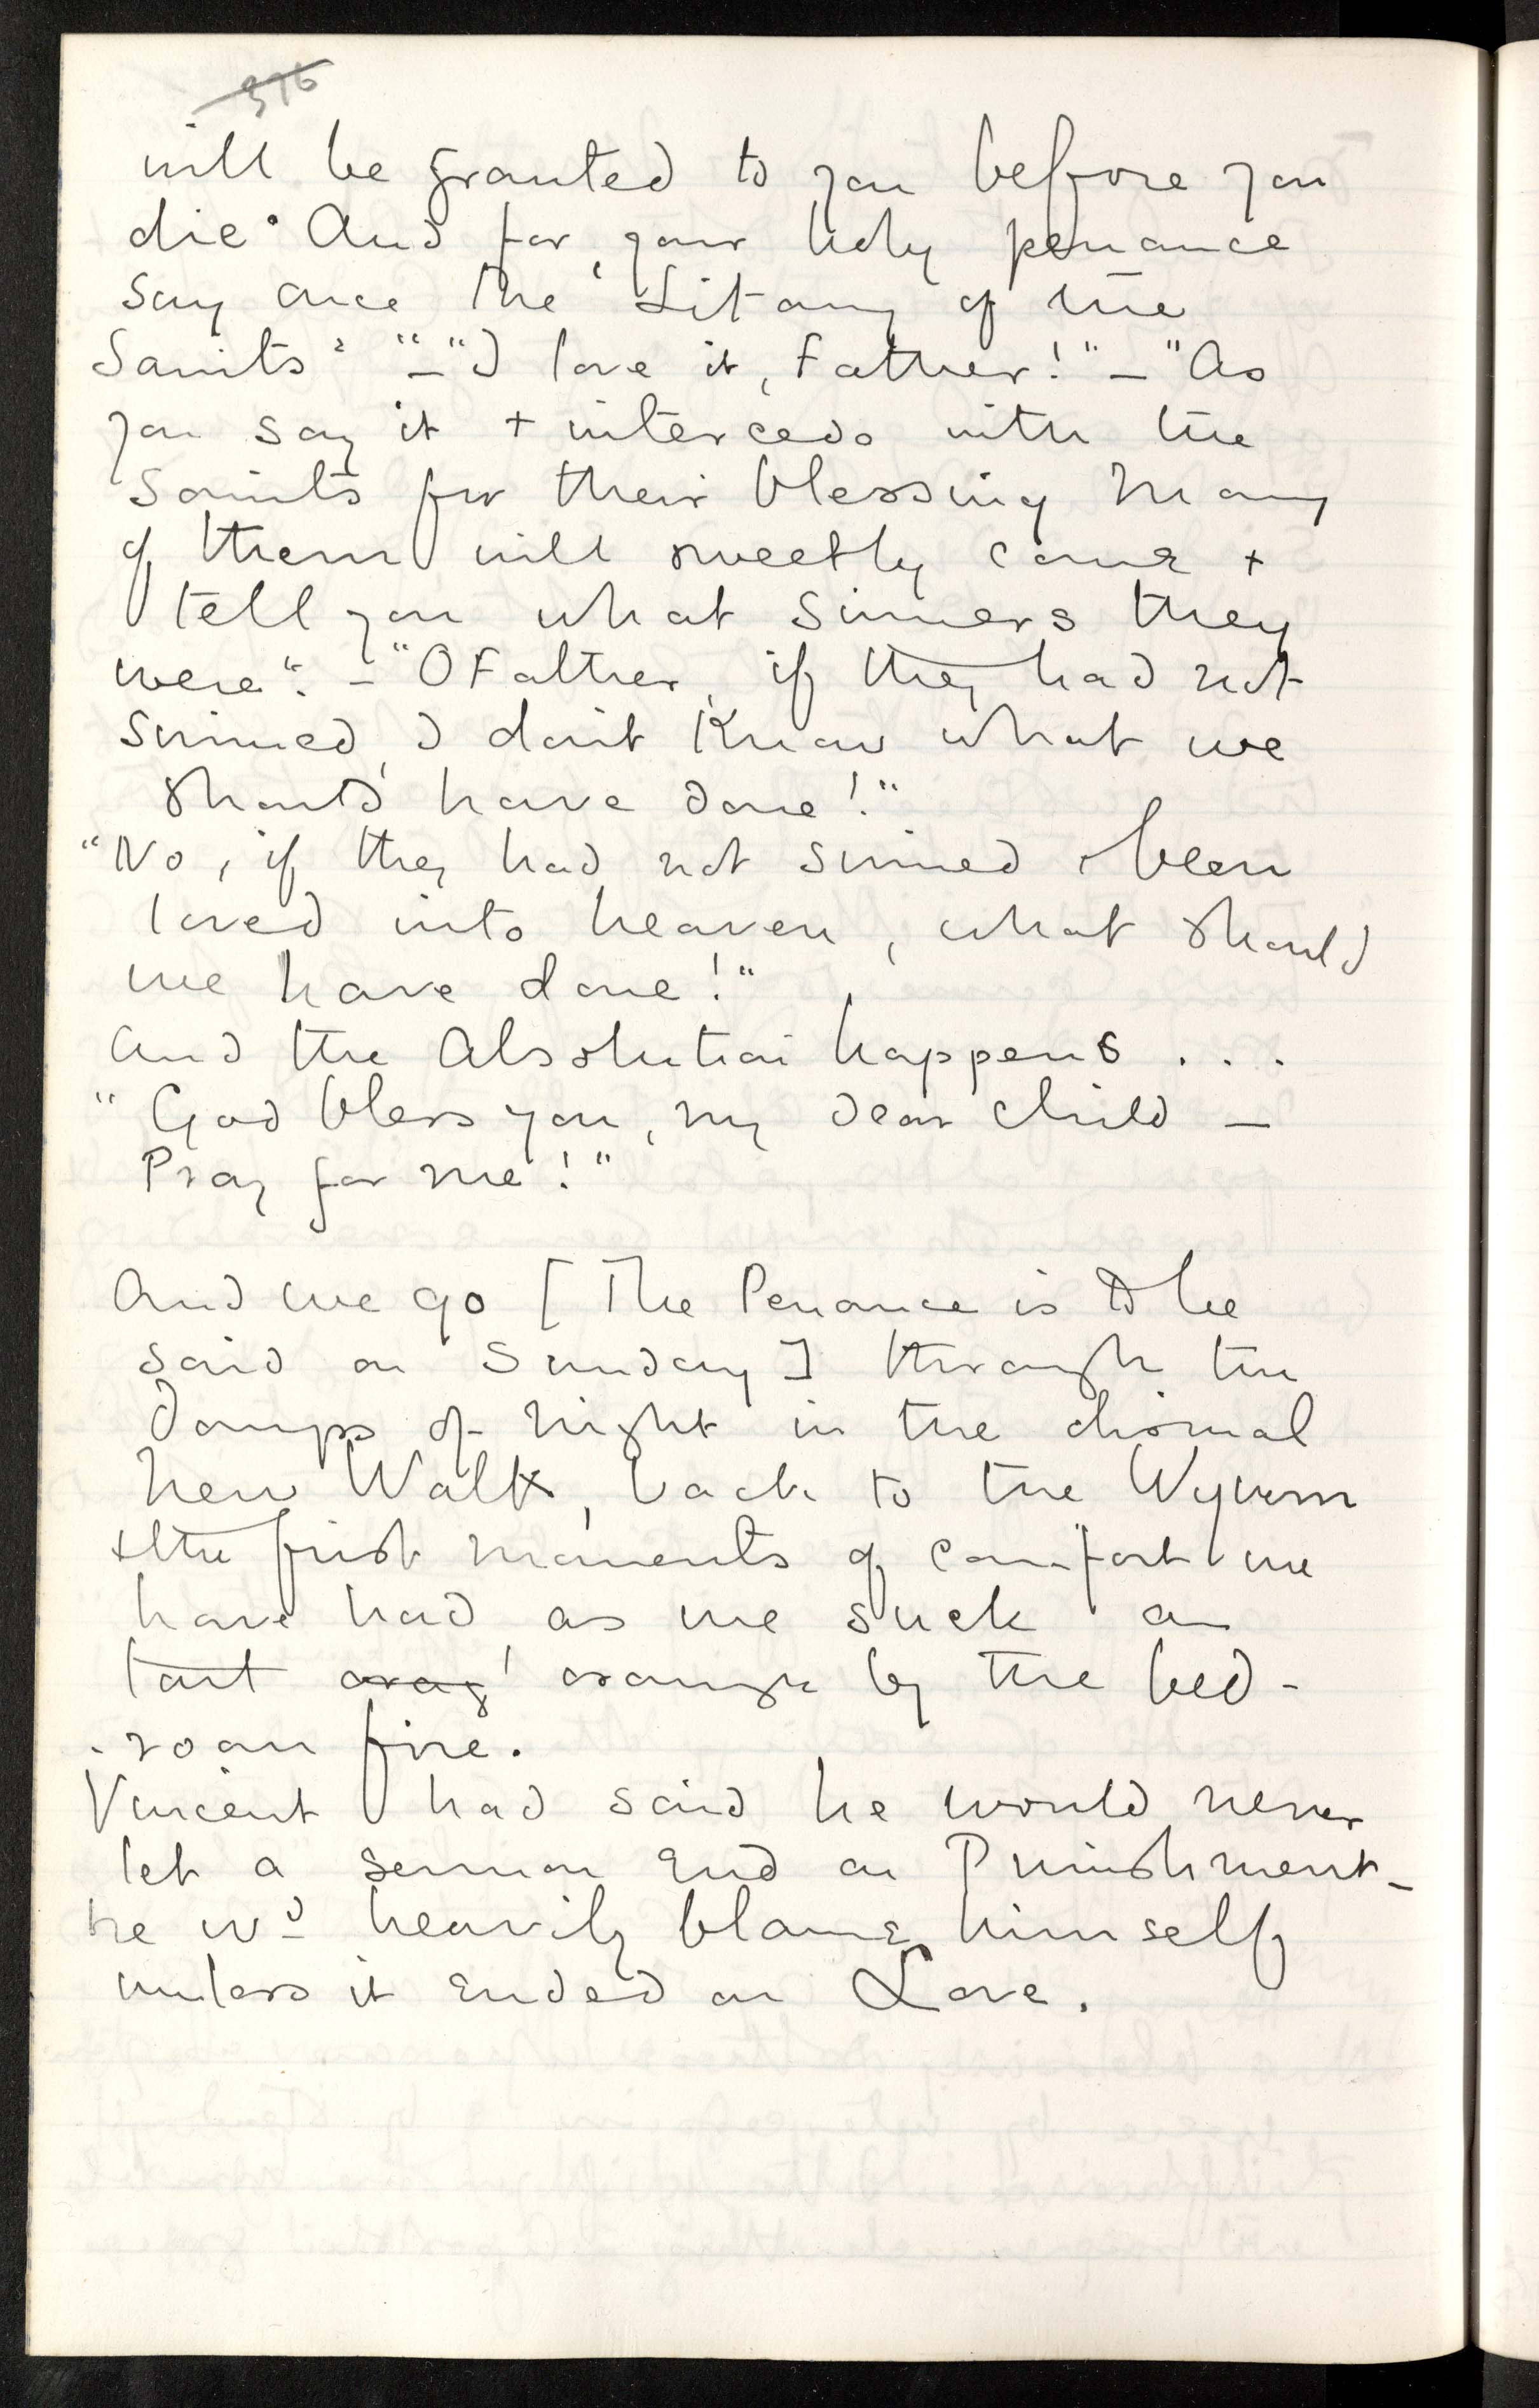 376
will be granted to you before you
die. And for your holy penance
say once the Litany of the
Saints." — "I love it, Father!" — "As
you say it + intercede with the
Saints for their blessing many
of them will sweetly come +
tell you what sinners they
were". — "O Father, if they had not
sinned, I don't know what we
should have done!"
"No, if they had not sinned + been
loved into heaven, what should
we have done!"
And the Absolution happens . . .
"God bless you, my dear child —
Pray for me!"
And we go [The Penance is to be
said on Sunday] through the
damps of night in the dismal
New Walk, back to the Wyvern
+ the first moments of comfort we
have had as we suck a
tart orang orange by the bed-
-room fire.
Vincent had said he would never
let a sermon end on Punishment —
he wd heavily blame himself
unless it ended on Love.